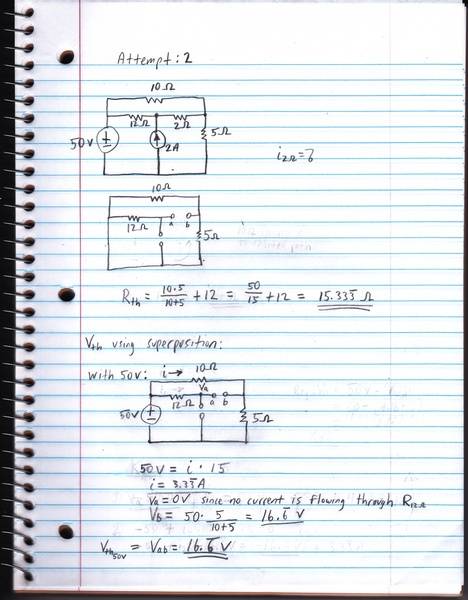 Attempt: 2
10Ω
12Ω 2Ω
50V 2A 5Ω
i₂Ω = ?
10Ω
12Ω a b 5Ω
Rth = 10·5/10+5 + 12 = 50/15 + 12 = 15.333̅ Ω
Vth using superposition:
With 50V: i → 10Ω
Va
12Ω a b
50V 5Ω
50V = i · 15
i = 3.33̅ A
Va = 0V since no current is flowing through R₁₂Ω
Vb = 50 · 5/10+5 = 16.6̅ V
Vth50V = Vab = 16.6̅ V